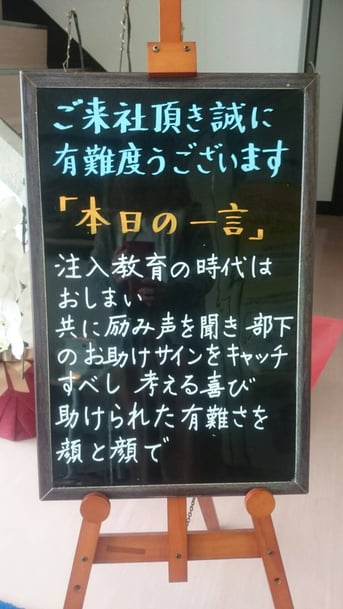 ご来社頂き誠に
有難度うございます
「本日の一言」
注入教育の時代は
おしまい
共に励み声を聞き部下
のお助けサインをキャッチ
すべし 考える喜び
助けられた有難さを
顔と顔で